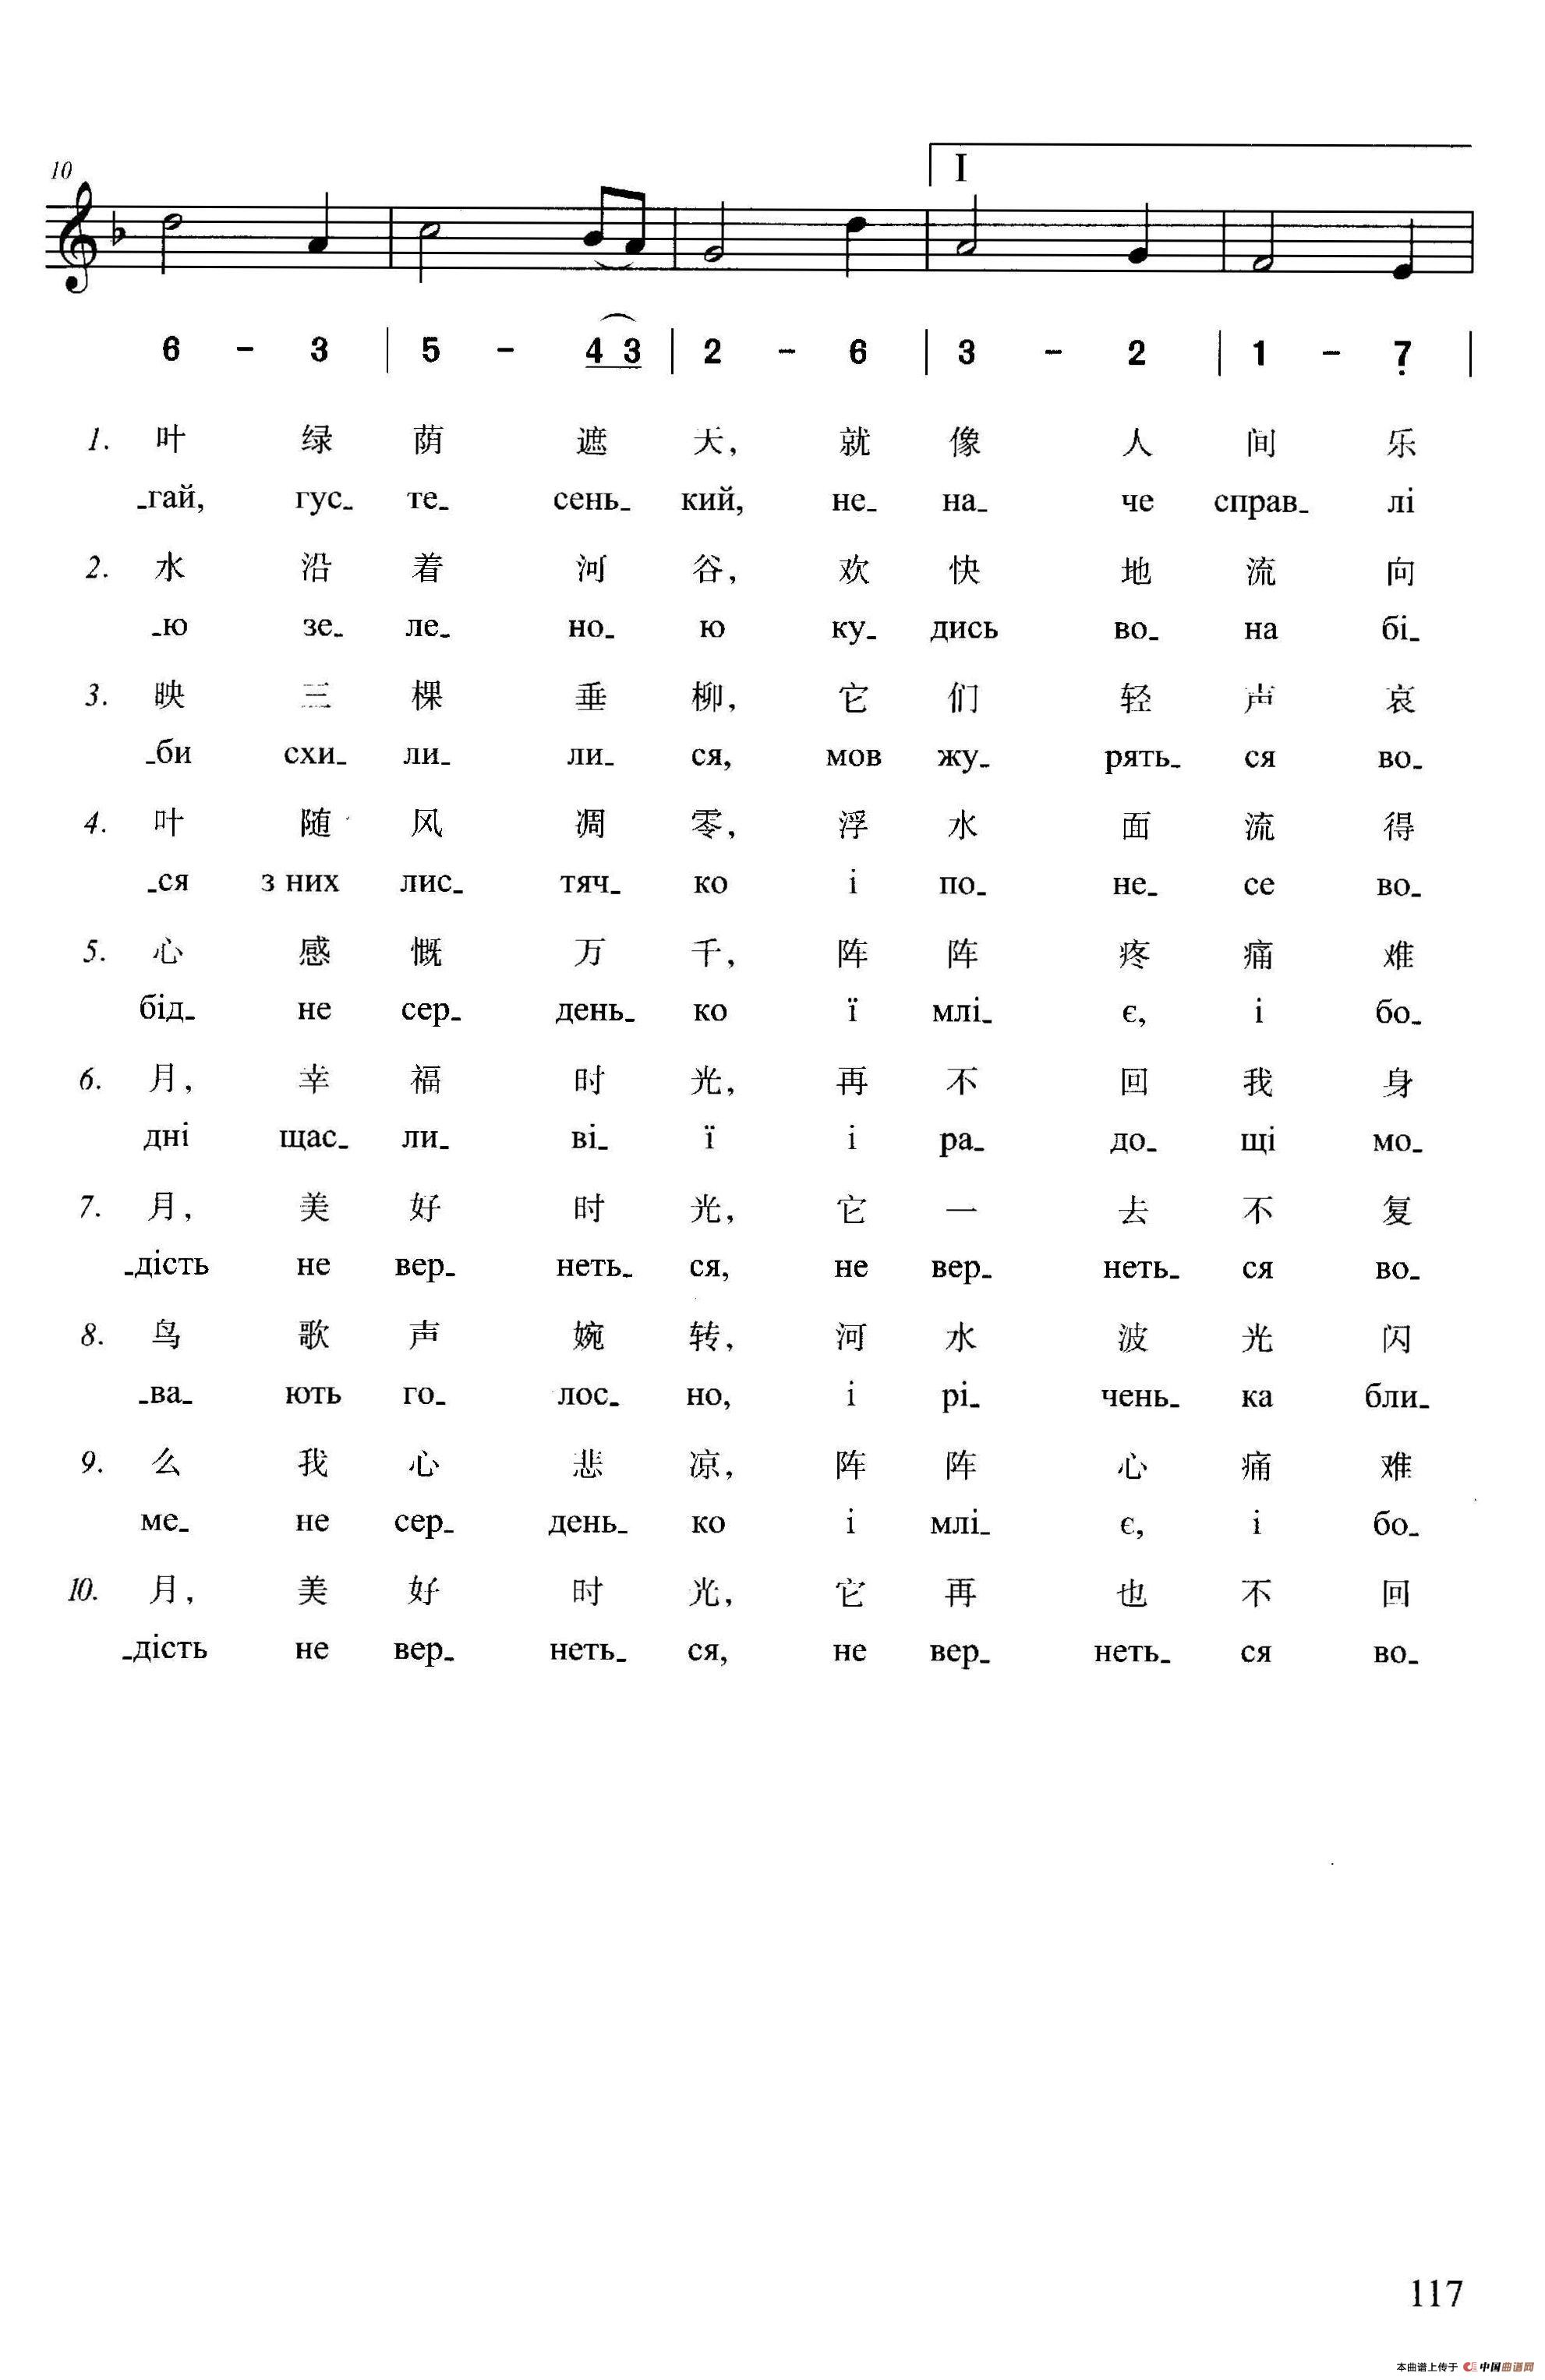 10
I
6 - 3 | 5 - 4 3 | 2 - 6 | 3 - 2 | 1 - 7 |
1. 叶 绿 荫 遮 天, 就 像 人 间 乐
_гай, гус_ те_ сень_ кий, не_ на_ че справ_ лі
2. 水 沿 着 河 谷, 欢 快 地 流 向
_ю зе_ ле_ но_ ю ку_ дись во_ на бі_
3. 映 三 棵 垂 柳, 它 们 轻 声 哀
_би схи_ ли_ ли_ ся, мов жу_ рять_ ся во_
4. 叶 随 风 凋 零, 浮 水 面 流 得
_ся з них лис_ тяч_ ко і по_ не_ се во_
5. 心 感 慨 万 千, 阵 阵 疼 痛 难
бід_ не сер_ день_ ко ї млі_ є, і бо_
6. 月, 幸 福 时 光, 再 不 回 我 身
дні щас_ ли_ ві_ ї і ра_ до_ щі мо_
7. 月, 美 好 时 光, 它 一 去 不 复
_дість не вер_ неть_ ся, не вер_ неть_ ся во_
8. 鸟 歌 声 婉 转, 河 水 波 光 闪
_ва_ ють го_ лос_ но, і рі_ чень_ ка бли_
9. 么 我 心 悲 凉, 阵 阵 心 痛 难
ме_ не сер_ день_ ко і млі_ є, і бо_
10. 月, 美 好 时 光, 它 再 也 不 回
_дість не вер_ неть_ ся, не вер_ неть_ ся во_
117
本曲谱上传于 中国曲谱网